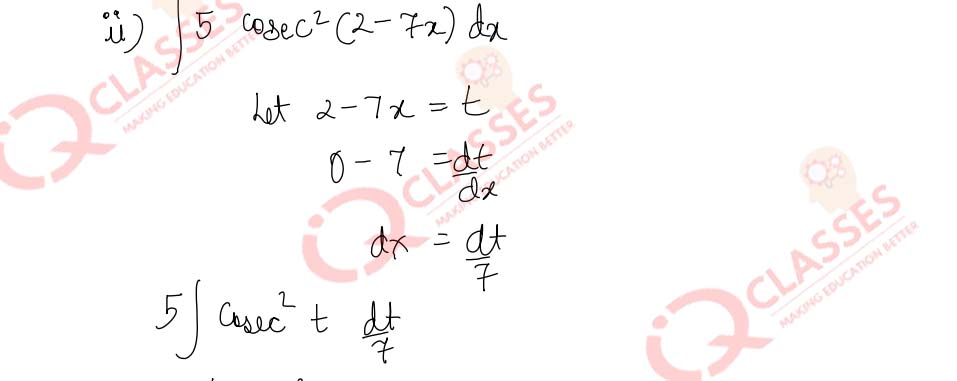 ii) ∫ 5 cosec² (2 - 7x) dx
Let 2 - 7x = t
0 - 7 = dt/dx
dx = dt/7
5 ∫ Cosec² t dt/7
CLASSES
MAKING EDUCATION BETTER
CLASSES
MAKING EDUCATION BETTER
CLASSES
MAKING EDUCATION BETTER